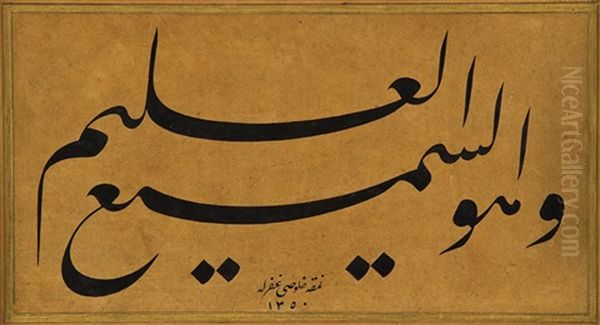 وهو السميع العليم
نمقه خلوصی غفرله
١٣٥٠
NiceArtGallery.com